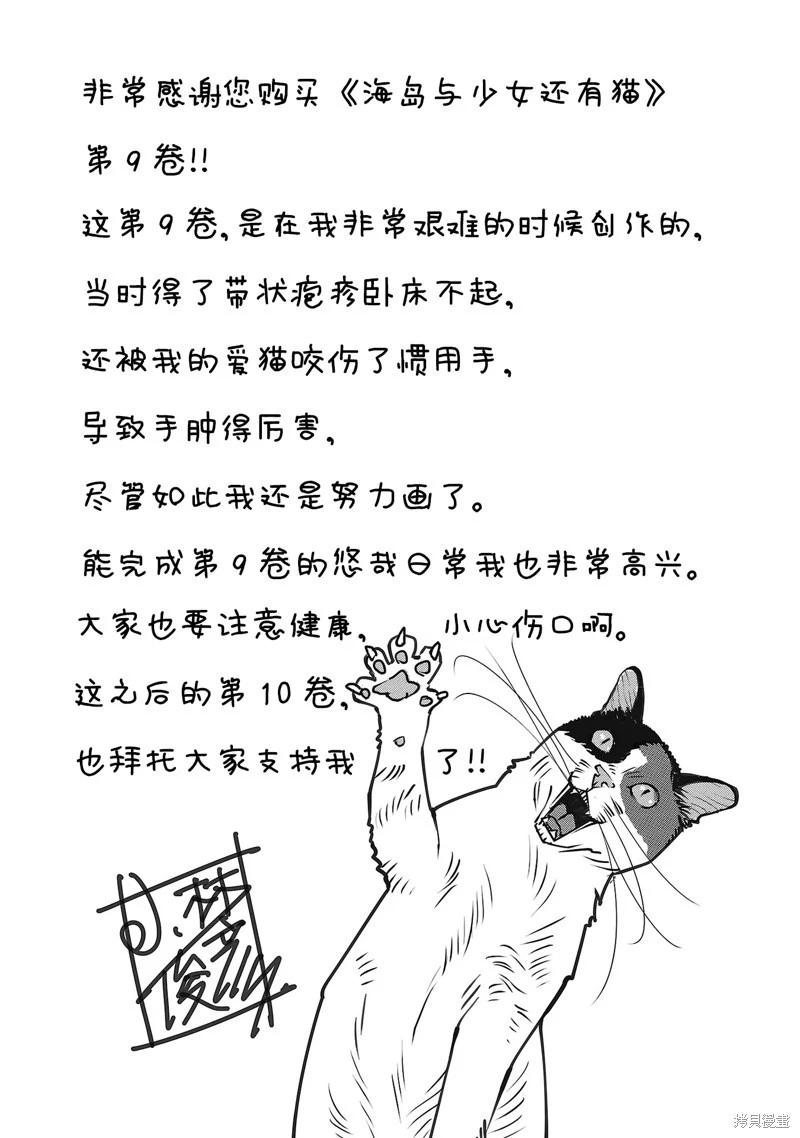 非常感谢您购买《海岛与少女还有猫》
第9卷!!
这第9卷,是在我非常艰难的时候创作的,
当时得了带状疱疹卧床不起,
还被我的爱猫咬伤了惯用手,
导致手肿得厉害,
尽管如此我还是努力画了。
能完成第9卷的悠哉日常我也非常高兴。
大家也要注意健康, 小心伤口啊。
这之后的第10卷,
也拜托大家支持我 了!!
小林
俊彦
拷貝漫畫